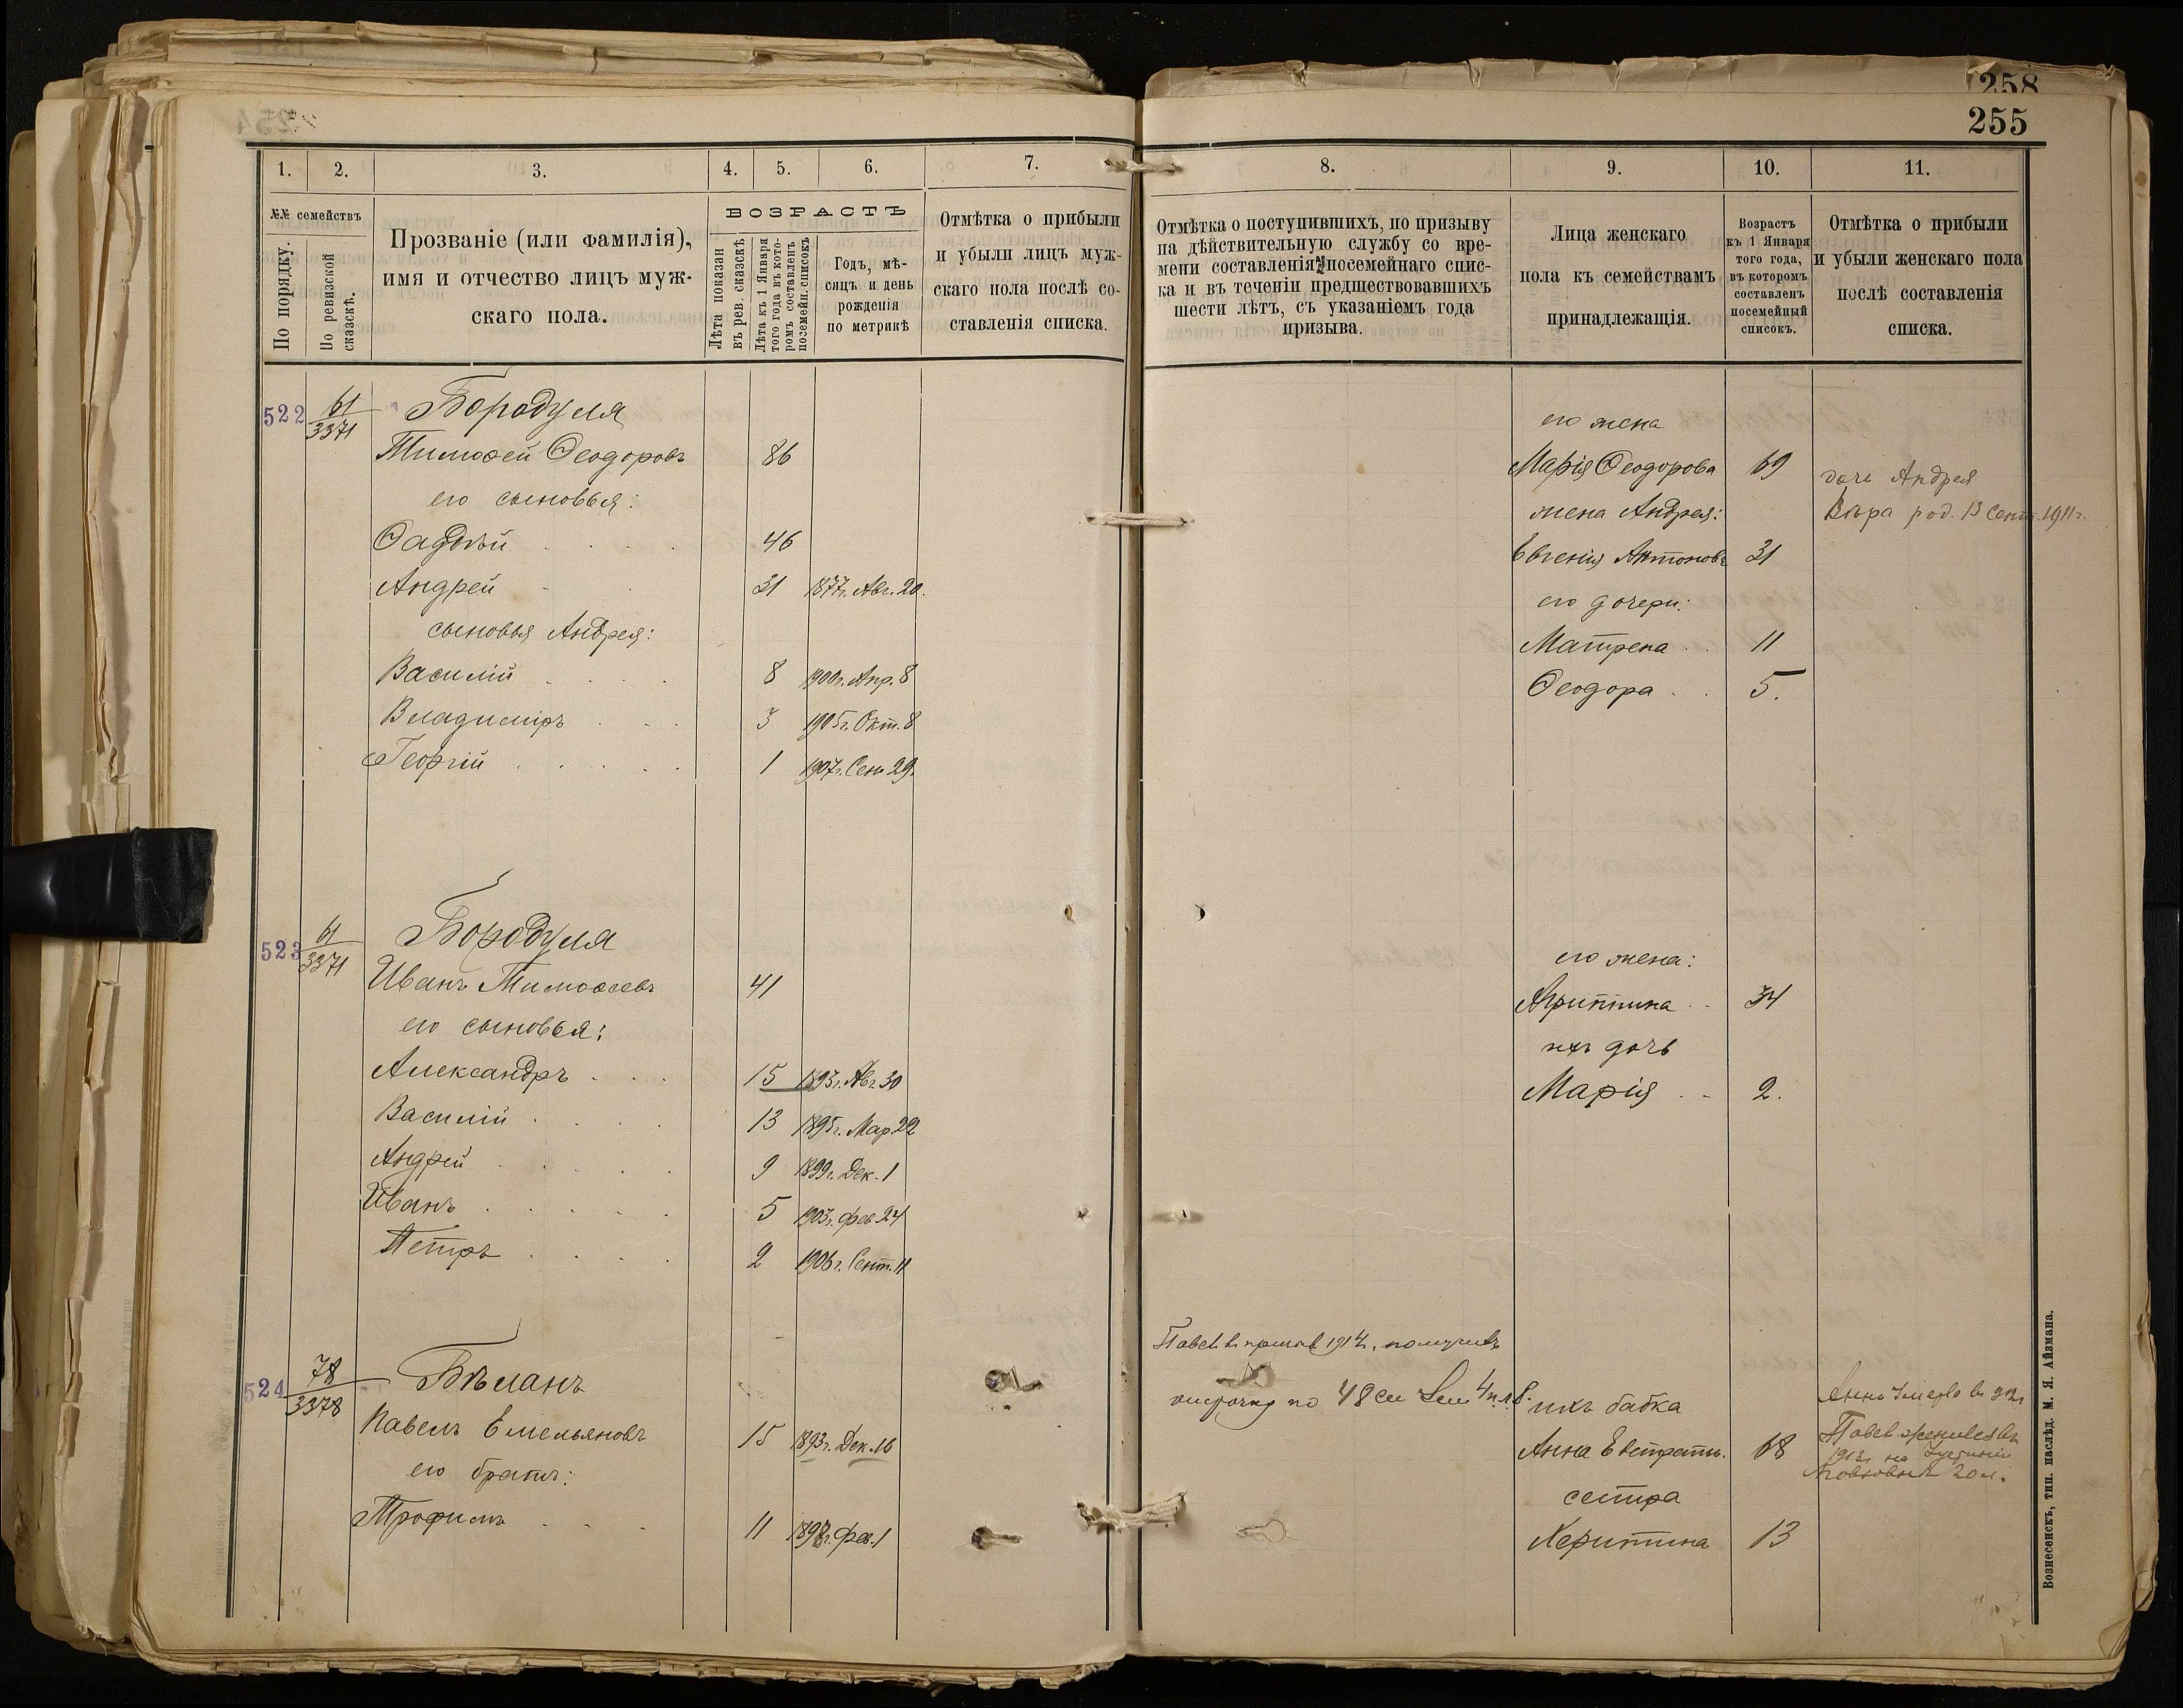 258
255
1.
2.
3.
4.
5.
6.
7.
№№ семействъ
По порядку.
По ревизской сказкѣ.
Прозваніе (или фамилія),
имя и отчество лицъ муж-
скаго пола.
ВОЗРАСТЪ
Лѣта показан
въ рев. сказкѣ
Лѣта къ 1 Января
того года въ кото-
ромъ составленъ
посемейн. списокъ
Годъ, мѣ-
сяцъ и день
рожденія
по метрикѣ
Отмѣтка о прибыли
и убыли лицъ муж-
скаго пола послѣ со-
ставленія списка.
522 61/3371 Бородуля
Тимоѳей Ѳеодоровъ 86
его сыновья:
Ѳадѣй 46
Андрей 31 1877г. Авг. 20.
сыновья Андрея:
Василій 8 1900г. Апр. 8
Владиміръ 3 1905г. Окт. 8
Георгій 1 1907г. Сен 29.
523 61/3371 Бородуля
Иванъ Тимоѳеевъ 41
его сыновья:
Александръ 15 1893г. Авг 30
Василій 13 1895г. Мар. 22
Андрей 9 1899г. Дек. 1
Иванъ 5 1903г. фев 24
Петръ 2 1906г. Сент. 11
524 78/3378 Бѣланъ
Павелъ Емельяновъ 15 1893г. Дек. 16
его братъ:
Трофимъ 11 1897г. фев. 1
8.
9.
10.
11.
Отмѣтка о поступившихъ, по призыву
на дѣйствительную службу со вре-
мени составленія посемейнаго спис-
ка и въ теченіи предшествовавшихъ
шести лѣтъ, съ указаніемъ года
призыва.
Лица женскаго
пола къ семействамъ
принадлежащія.
Возрастъ
къ 1 Января
того года,
въ которомъ
составленъ
посемейный
списокъ.
Отмѣтка о прибыли
и убыли женскаго пола
послѣ составленія
списка.
его жена
Марія Ѳеодорова 69
дочь Андрея
жена Андрея:
Вѣра род. 13 Сент. 1911г.
Евгенія Антонова 31
его дочери:
Матрена 11
Ѳеодора 5.
его жена:
Агрипина 34
ихъ дочь
Марія 2.
1914
отсрочку по 48 4
ихъ бабка
Анна
Анна Евстратьи. 68
1913г. на
20 л.
сестра
Харитина 13
Вознесенскъ, тип. наслѣд. М. Я. Айзмана.